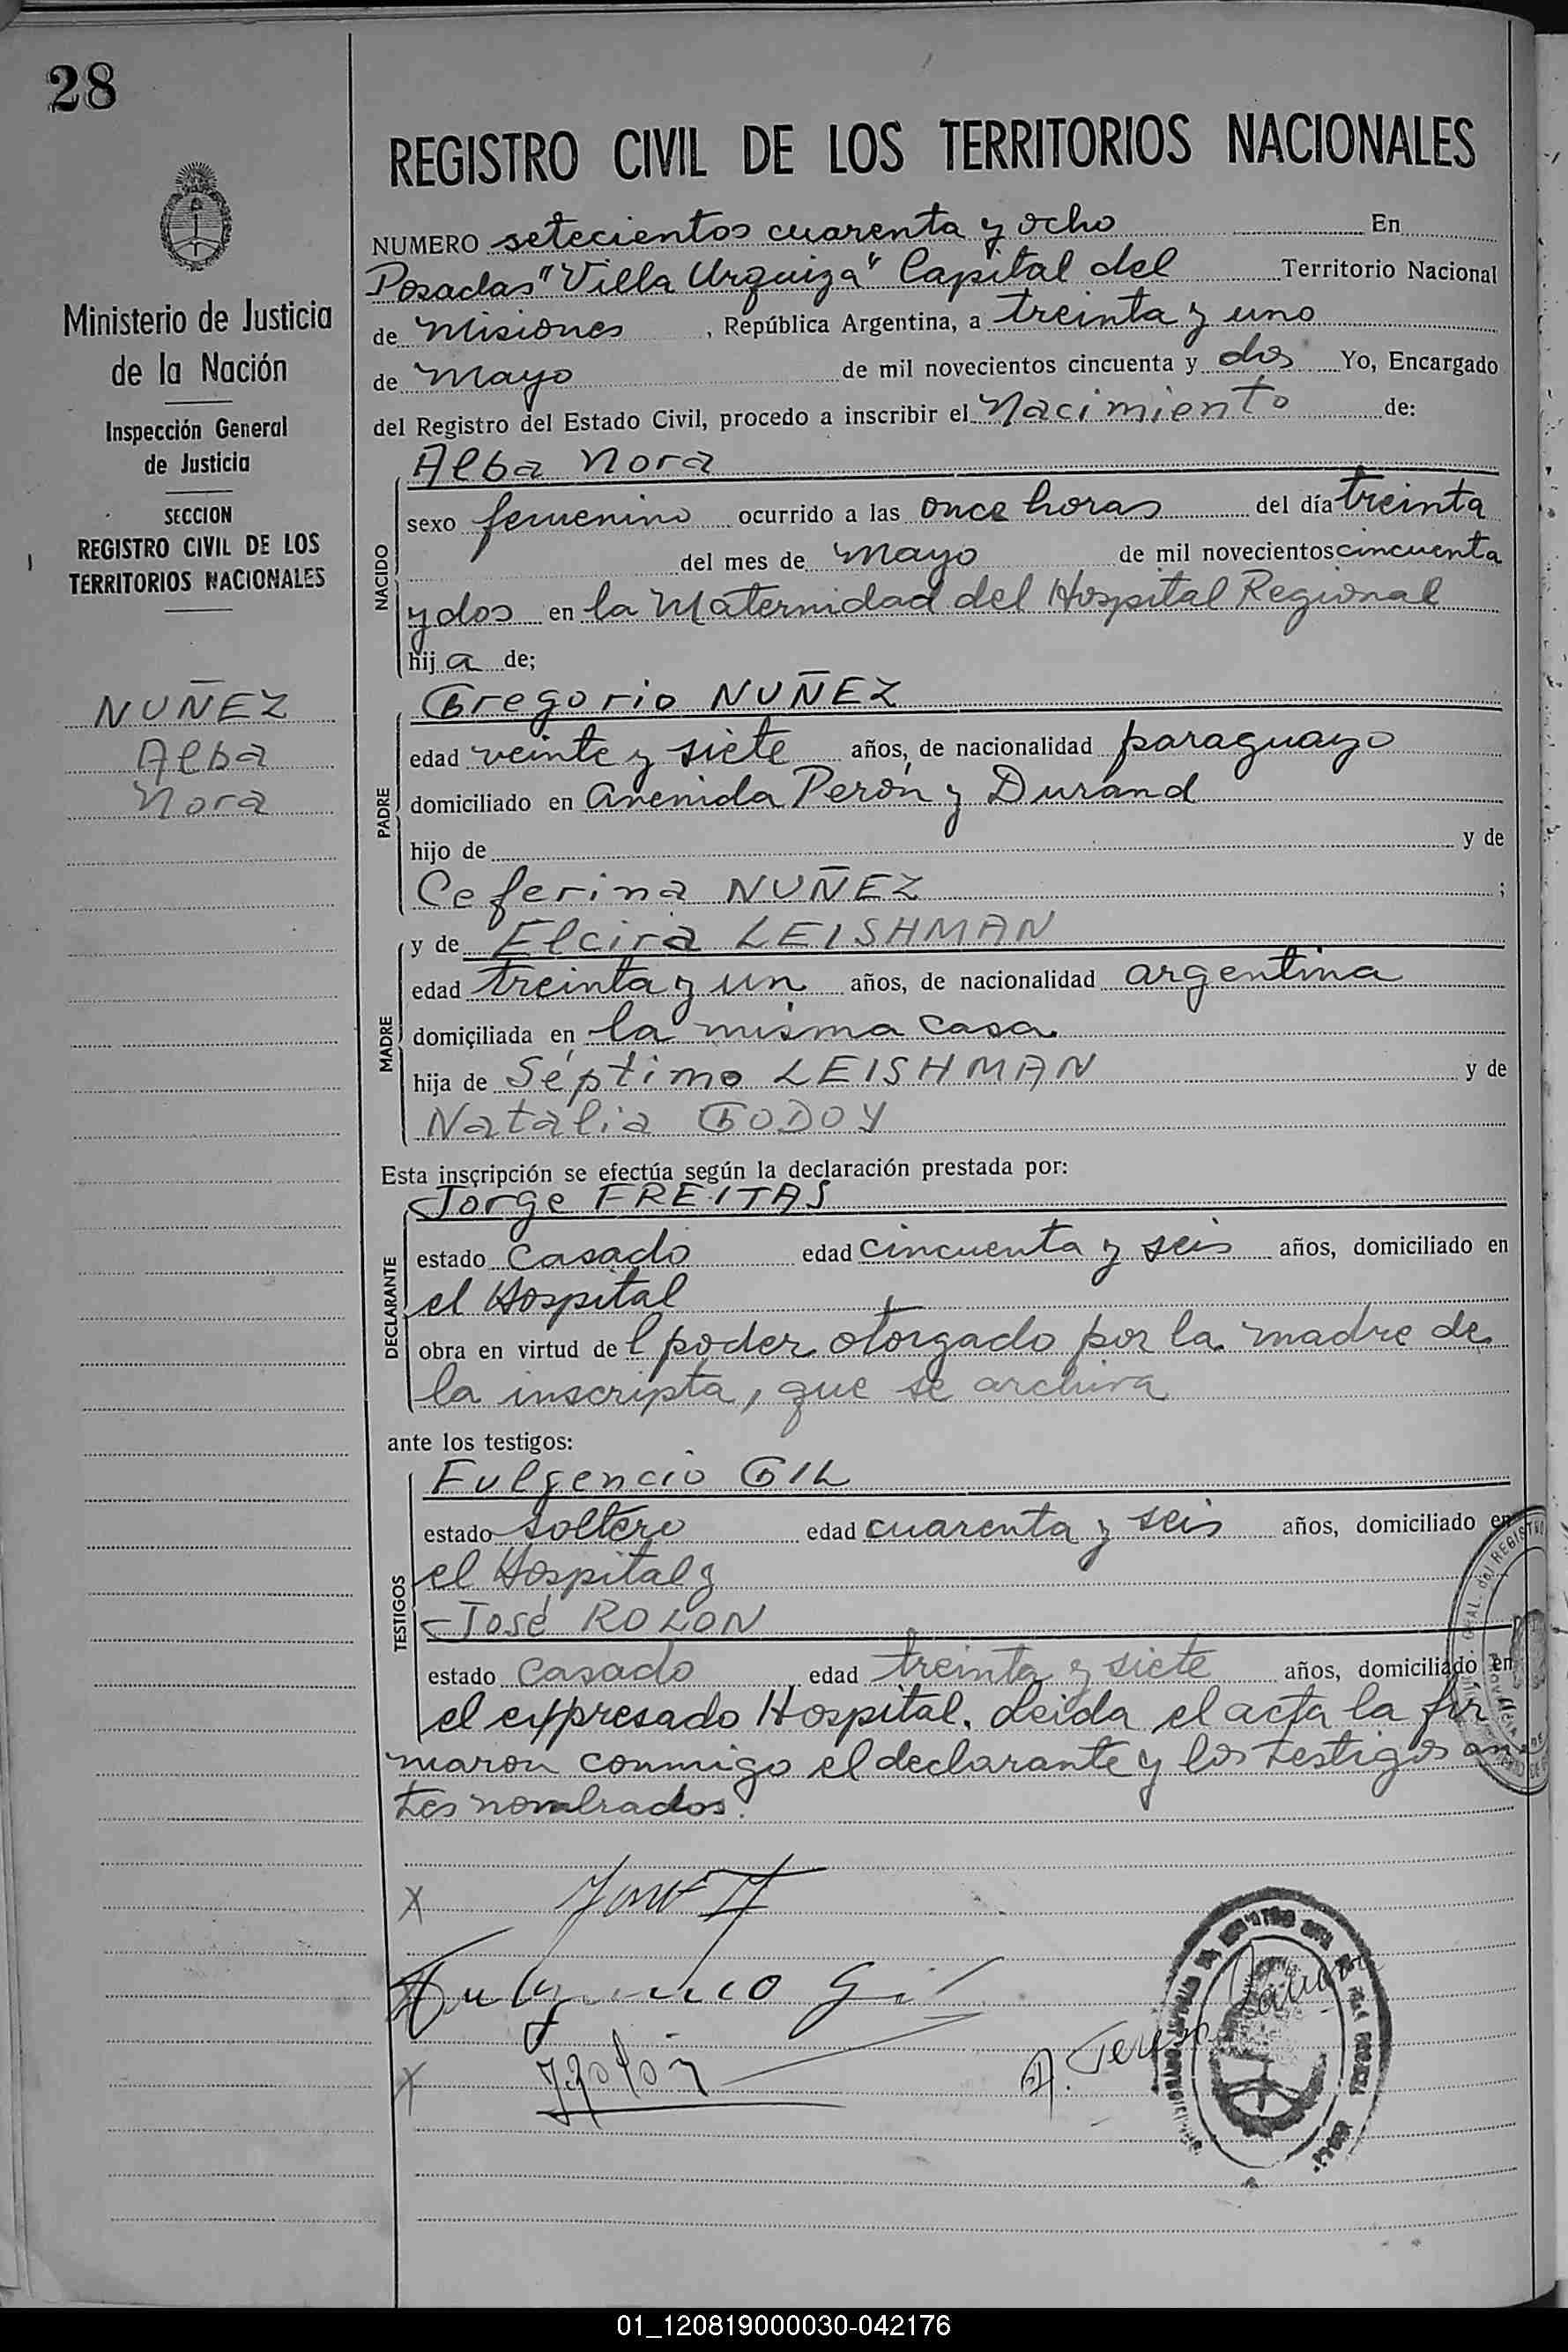 28
REGISTRO CIVIL DE LOS TERRITORIOS NACIONALES
Ministerio de Justicia
de la Nación
Inspección General
de Justicia
SECCION
REGISTRO CIVIL DE LOS
TERRITORIOS NACIONALES
NUÑEZ
Alba
Nora
NUMERO setecientos cuarenta y ocho En
Posadas "Villa Urquiza" Capital del Territorio Nacional
de Misiones, República Argentina, a treinta y uno
de Mayo de mil novecientos cincuenta y dos Yo, Encargado
del Registro del Estado Civil, procedo a inscribir el Nacimiento de:
Alba Nora
NACIDO
sexo femenino ocurrido a las once horas del día treinta
del mes de mayo de mil novecientos cincuenta
y dos en la Maternidad del Hospital Regional
hij a de;
Gregorio NUÑEZ
PADRE
edad veinte y siete años, de nacionalidad paraguayo
domiciliado en Avenida Perón y Durand
hijo de y de
Ceferina NUÑEZ ;
y de Elcira LEISHMAN
MADRE
edad treinta y un años, de nacionalidad argentina
domiciliada en la misma casa
hija de Séptimo LEISHMAN y de
Natalia GODOY
Esta inscripción se efectúa según la declaración prestada por:
Jorge FREITAS
DECLARANTE
estado casado edad cincuenta y seis años, domiciliado en
el Hospital
obra en virtud de l poder otorgado por la madre de
la inscripta, que se archiva
ante los testigos:
Fulgencio GIL
TESTIGOS
estado soltero edad cuarenta y seis años, domiciliado en
el Hospital y
José ROLON
estado casado edad treinta y siete años, domiciliado en
el expresado Hospital. Leida el acta la fir
maron conmigo el declarante y los testigos an
tes nombrados.
X
Fulgencio Gil
X JRolón
01_120819000030-042176